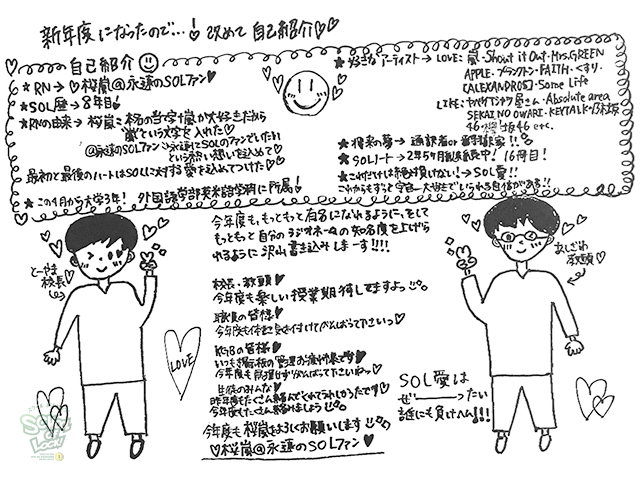 新年度になったので…! 改めて自己紹介♡
自己紹介
★RN→♡桜嵐@永遠のSOLファン♥
★SOL歴→8年目
★RNの由来→桜嵐：本名の苗字&嵐が大好きだから
"嵐"という文字を入れた♡
@永遠のSOLファン：永遠にSOLのファンでいたい
という熱い想いを込めて♡
最初と最後のハートはSOLに対する愛を込めてつけた♡
★この4月から大学3年! 外国語学部英米語学科に所属!
★好きなアーティスト→LOVE：嵐・Shout it Out・Mrs.GREEN
APPLE・ブランクトン・FAITH・くすり・
[ALEXANDROS]・Some Life
LIKE：ヤバイTシャツ屋さん・Absolute area
SEKAI NO OWARI・KEYTALK・乃木坂
46・欅坂46 etc.
★将来の夢→通訳者or翻訳家!!
★SOLノート→2年5ヶ月継続中! 16冊目!
★これだけは絶対負けない!→SOL愛!!
これからもずっと宇宙一大好きでいられる自信がある!!
とーやま
校長♡
あしざわ
教頭♡
今年度も、もっともっと有名になれるように、そして
もっともっと自分のラジオネームの知名度を上げら
れるように沢山書き込みしまーす!!!!
校長・教頭♡
今年度も楽しい授業期待してますよっ
職員の皆様♡
今年度も体に気を付けてがんばって下さいっ♡
KGBの皆様♡
いつも掲示板の管理お疲れ様です♥
今年度も無理せずがんばって下さいねっ♡
生徒のみんな♥
昨年度もたくさん絡んでくれてうれしかったです♡
今年度もたくさん絡みましょう
今年度も桜嵐をよろしくお願いします
♡桜嵐@永遠のSOLファン♥
LOVE
SOL愛は
ぜーーったい
誰にも負けへん!!!
SCHOOL OF LOCK!